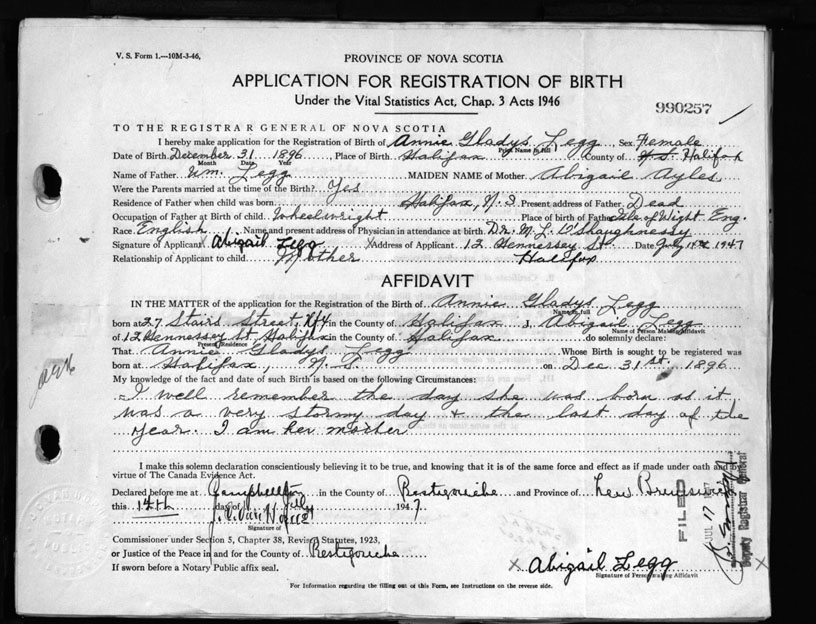 V. S. Form 1.—10M-3-46,
PROVINCE OF NOVA SCOTIA
APPLICATION FOR REGISTRATION OF BIRTH
Under the Vital Statistics Act, Chap. 3 Acts 1946
990257
TO THE REGISTRAR GENERAL OF NOVA SCOTIA
I hereby make application for the Registration of Birth of Annie Gladys Legg, Sex Female
Print Name in full
Date of Birth December 31 1896, Place of Birth Halifax County of Halifax
Month Date Year
Name of Father Wm. Legg MAIDEN NAME of Mother Abigail Ayles
Were the Parents married at the time of the Birth? Yes
Residence of Father when child was born Halifax, N.S. Present address of Father Dead
Occupation of Father at Birth of child Wheelwright Place of birth of Father Isle of Wight Eng.
Race English Name and present address of Physician in attendance at birth Dr. M. L. O'Shaughnessy
Signature of Applicant Abigail Legg Address of Applicant 12 Hennessey St. Date July 1947
Relationship of Applicant to child Mother Halifax
AFFIDAVIT
IN THE MATTER of the application for the Registration of the Birth of Annie Gladys Legg
Name in full
born at 27 Stairs Street, Hfx in the County of Halifax I, Abigail Legg
Name of Person Making Affidavit
of 12 Hennessey St Halifax in the County of Halifax do solemnly declare:
Present Residence
That Annie Gladys Legg Whose Birth is sought to be registered was
born at Halifax, N.S. on Dec 31st. 1896
My knowledge of the fact and date of such Birth is based on the following Circumstances:
- I well remember the day she was born as it
was a very stormy day & the last day of the
year. I am her mother
I make this solemn declaration conscientiously believing it to be true, and knowing that it is of the same force and effect as if made under oath and by
virtue of The Canada Evidence Act.
Declared before me at Campbellton in the County of Restigouche and Province of New Brunswick
this 14th day of July 1947
Signature of
Commissioner under Section 5, Chapter 38, Revised Statutes, 1923,
or Justice of the Peace in and for the County of Restigouche
If sworn before a Notary Public affix seal.
x Abigail Legg x
Signature of Person making Affidavit
For Information regarding the filling out of this Form, see Instructions on the reverse side.
FILED
JUL 17 1947
Deputy Registrar General